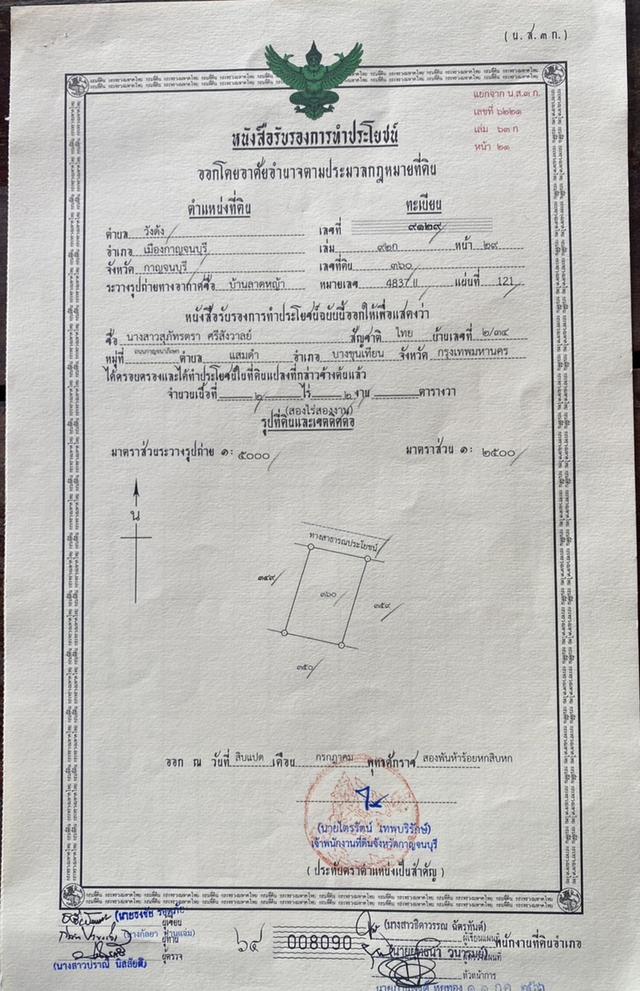 (น.ส.๓ ก.)
แยกจาก น.ส.๓ ก.
เลขที่ ๖๒๒๑
เล่ม ๖๓ ก
หน้า ๒๑
หนังสือรับรองการทำประโยชน์
ออกโดยอาศัยอำนาจตามประมวลกฎหมายที่ดิน
ตำแหน่งที่ดิน ทะเบียน
ตำบล วังด้ง เลขที่ ๙๑๒๙
อำเภอ เมืองกาญจนบุรี เล่ม ๙๒ก หน้า ๒๙
จังหวัด กาญจนบุรี เลขที่ดิน ๓๖๐
ระวางรูปถ่ายทางอากาศชื่อ บ้านลาดหญ้า หมายเลข 4837 II แผ่นที่ 121
หนังสือรับรองการทำประโยชน์ฉบับนี้ออกให้เพื่อแสดงว่า
ชื่อ นางสาวสุภัทรตรา ศรีสังวาลย์ สัญชาติ ไทย บ้านเลขที่ ๒/๓๔
หมู่ที่ ถนนกาญจนาภิเษก ตำบล แสมดำ อำเภอ บางขุนเทียน จังหวัด กรุงเทพมหานคร
ได้ครอบครองและได้ทำประโยชน์ในที่ดินแปลงที่กล่าวข้างต้นแล้ว
จำนวนเนื้อที่ ๒ ไร่ ๒ งาน ตารางวา
(สองไร่สองงาน)
รูปที่ดินและเขตติดต่อ
มาตราส่วนระวางรูปถ่าย ๑: ๕๐๐๐ มาตราส่วน ๑: ๒๕๐๐
น
ทางสาธารณประโยชน์
๓๔๙
๓๖๐
๓๕๙
๓๕๐
ออก ณ วันที่ สิบแปด เดือน กรกฎาคม พุทธศักราช สองพันห้าร้อยหกสิบหก
(นายไตรรัตน์ เทพบริรักษ์)
เจ้าพนักงานที่ดินจังหวัดกาญจนบุรี
(ประทับตราตำแหน่งเป็นสำคัญ)
ผู้เขียน
ผู้ทาน
ผู้ตรวจ
๖๔ 008090
(นางสาวธิดาวรรณ ฉัตรทันต์)
พนักงานที่ดินอำเภอ
หัวหน้าการ